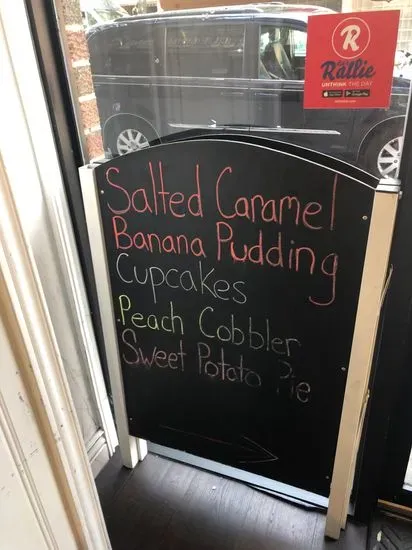 R
Rallie
UNTHINK THE DAY
Salted Caramel
Banana Pudding
Cupcakes
Peach Cobbler
Sweet Potato Pie